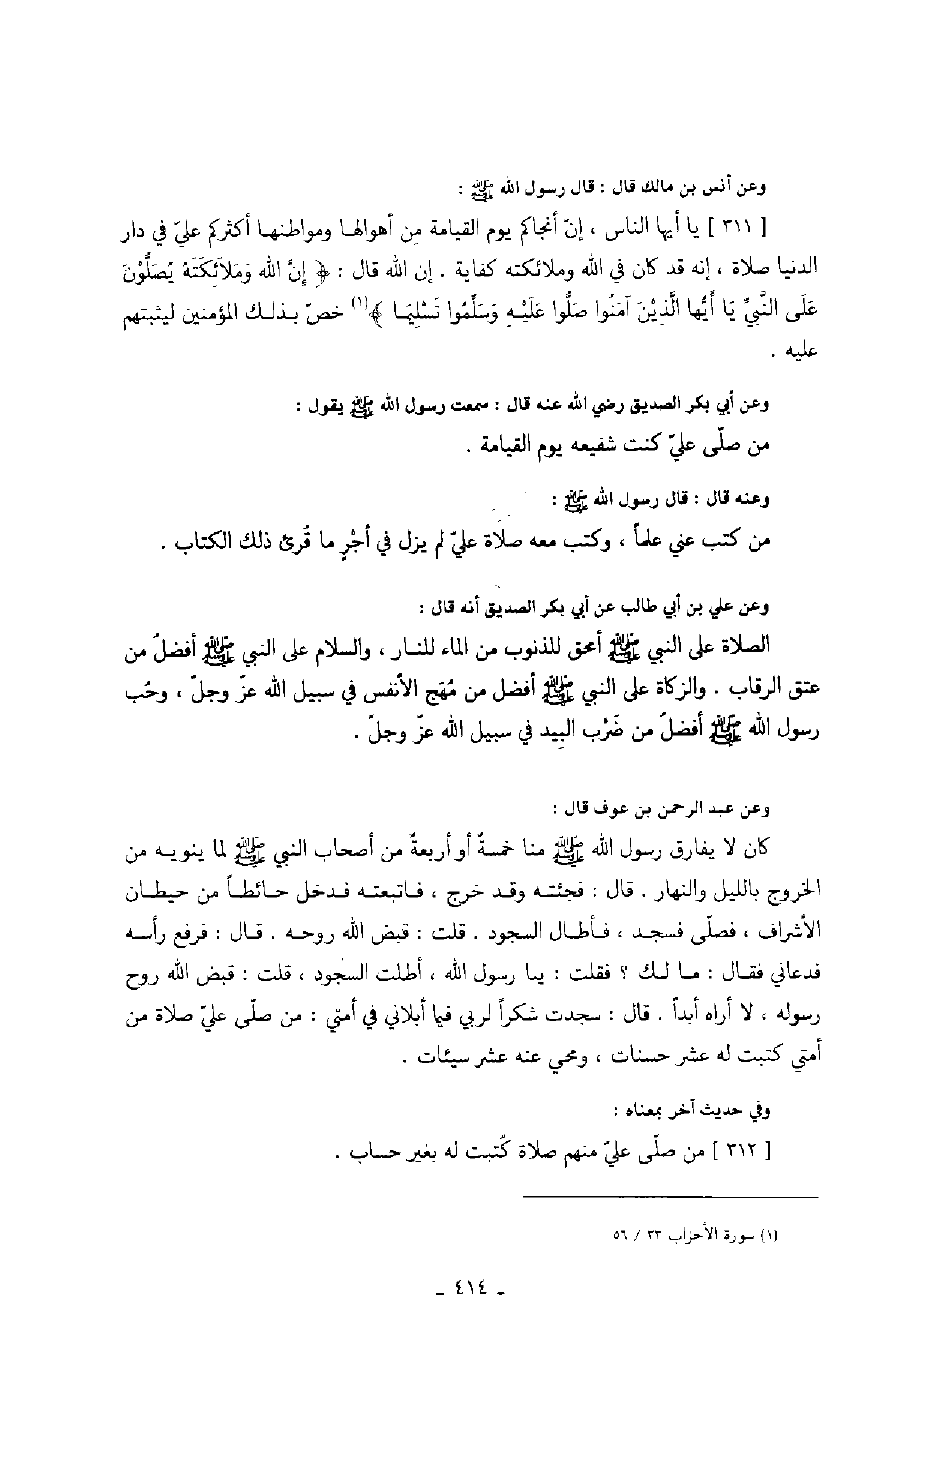 وعن أنس بن مالك قال : قال رسول الله ﷺ :
[ ٣١١ ] يا أيها الناس ، إنّ أنجاكم يوم القيامة من أهوالها ومواطنها أكثركم عليّ في دار
الدنيا صلاة ، إنه قد كان في الله وملائكته كفاية . إن الله قال : ﴿ إِنَّ الله وَمَلاَئِكَتَهُ يُصَلُّوْنَ
عَلَى النَّبِيِّ يَا أَيُّها الَّذِيْنَ آمَنُوا صَلُّوا عَلَيْهِ وَسَلِّمُوا تَسْلِيمَا ﴾(١) خصّ بذلك المؤمنين ليثبتهم
عليه .
وعن أبي بكر الصديق رضي الله عنه قال : سمعت رسول الله ﷺ يقول :
من صلّى عليّ كنت شفيعه يوم القيامة .
وعنه قال : قال رسول الله ﷺ :
من كتب عني علماً ، وكتب معه صلاة عليّ لم يزل في أجْرٍ ما قُرئ ذلك الكتاب .
وعن علي بن أبي طالب عن أبي بكر الصديق أنه قال :
الصلاة على النبي ﷺ أمحق للذنوب من الماء للنار ، والسلام على النبي ﷺ أفضلُ من
عتق الرقاب . والزكاة على النبي ﷺ أفضل من مُهَج الأنفس في سبيل الله عزّ وجلّ ، وحُب
رسول الله ﷺ أفضلُ من ضَرْب البيد في سبيل الله عزّ وجلّ .
وعن عبد الرحمن بن عوف قال :
كان لا يفارق رسول الله ﷺ منا خمسةٌ أو أربعةٌ من أصحاب النبي ﷺ لما ينويه من
الخروج بالليل والنهار . قال : فجئته وقد خرج ، فاتبعته فدخل حائطاً من حيطان
الأشراف ، فصلّى فسجد ، فأطال السجود . قلت : قبض الله روحه . قال : فرفع رأسه
فدعاني فقال : ما لك ؟ فقلت : يا رسول الله ، أطلت السجود ، قلت : قبض الله روح
رسوله ، لا أراه أبداً . قال : سجدت شكراً لربي فيما أبلاني في أمتي : من صلّى عليّ صلاة من
أمتي كتبت له عشر حسنات ، ومحي عنه عشر سيئات .
وفي حديث آخر بمعناه :
[ ٣١٢ ] من صلّى عليّ منهم صلاة كُتبت له بغير حساب .
(١) سورة الأحزاب ٣٣ / ٥٦
- ٤١٤ -